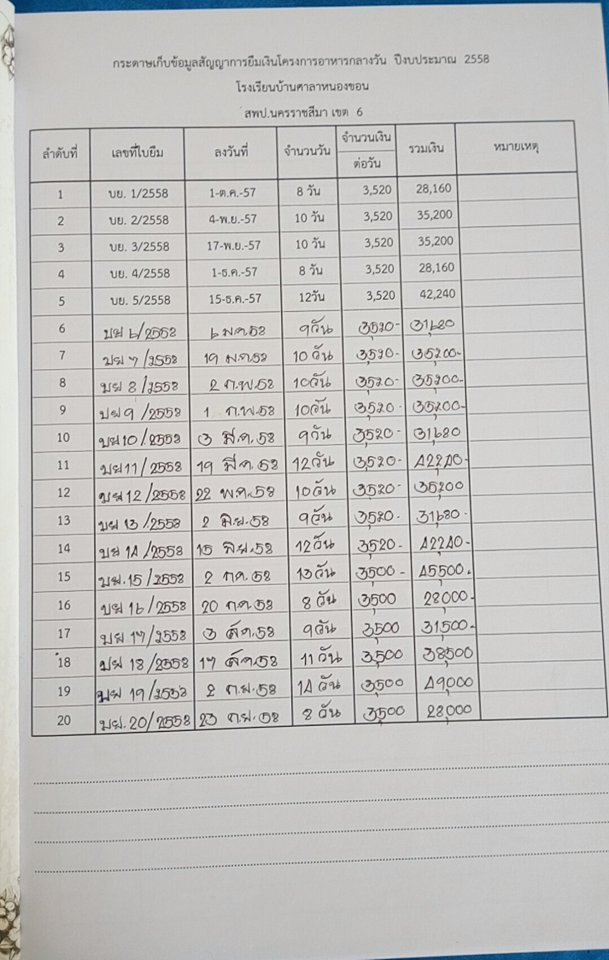 กระดาษเก็บข้อมูลสัญญาการยืมเงินโครงการอาหารกลางวัน ปีงบประมาณ 2558
โรงเรียนบ้านศาลาหนองขอน
สพป.นครราชสีมา เขต 6
ลำดับที่ เลขที่ใบยืม ลงวันที่ จำนวนวัน จำนวนเงิน ต่อวัน รวมเงิน หมายเหตุ
1 บย. 1/2558 1-ต.ค.-57 8 วัน 3,520 28,160
2 บย. 2/2558 4-พ.ย.-57 10 วัน 3,520 35,200
3 บย. 3/2558 17-พ.ย.-57 10 วัน 3,520 35,200
4 บย. 4/2558 1-ธ.ค.-57 8 วัน 3,520 28,160
5 บย. 5/2558 15-ธ.ค.-57 12วัน 3,520 42,240
6 บย 6/2558 6 ม.ค.58 9วัน 3,520- 31,680
7 บย 7/2558 19 ม.ค.58 10 วัน 3,520- 35,200-
8 บย 8/2558 2 ก.พ.58 10วัน 3,520- 35,200-
9 บย 9/2558 1 ก.พ.58 10วัน 3,520- 35,200-
10 บย10/2558 3 มี.ค.58 9วัน 3,520- 31,680
11 บย11/2558 19 มี.ค.58 12วัน 3,520- 42,240-
12 บย 12/2558 22 พ.ค.58 10วัน 3,520- 35,200
13 บย 13/2558 2 มิ.ย.58 9วัน 3,520- 31,680-
14 บย 14/2558 15 มิ.ย.58 12วัน 3,520- 42,240-
15 บย.15/2558 2 ก.ค.58 13วัน 3,500- 45,500-
16 บย 16/2558 20 ก.ค.58 8 วัน 3,500 28,000-
17 บย 17/2558 3 ส.ค.58 9วัน 3,500 31,500-
18 บย 18/2558 17 ส.ค.58 11 วัน 3,500 38,500
19 บย 19/2558 2 ก.ย.58 14 วัน 3,500 49,000
20 บย.20/2558 23 ก.ย.58 8 วัน 3,500 28,000